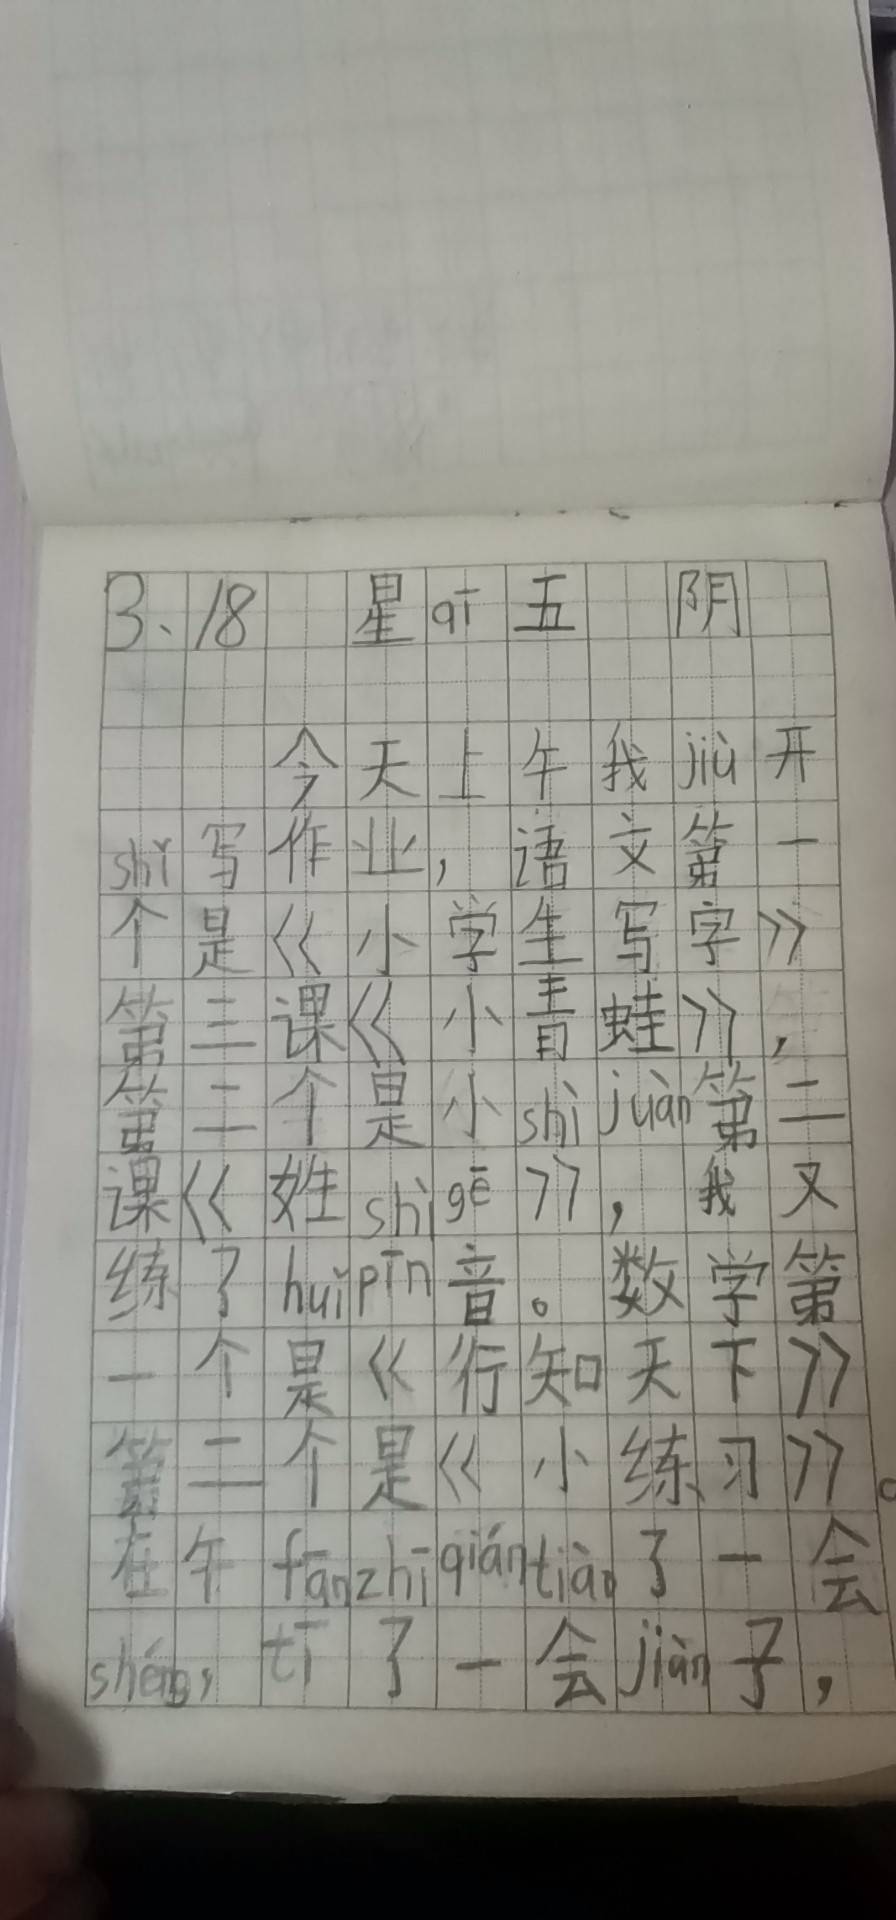 3、18 星qī五 阴
今天上午我jiù开
shǐ写作业，语文第一
个是《小学生写字》
第三课《小青蛙》，
第二个是小shìjuàn第二
课《姓shìgē》，我又
练了huìpīn音。数学第
一个是《行知天下》
第二个是《小练习》。
在午fānzhīqiántiào了一会
shéng，tī了一会jiàn子，